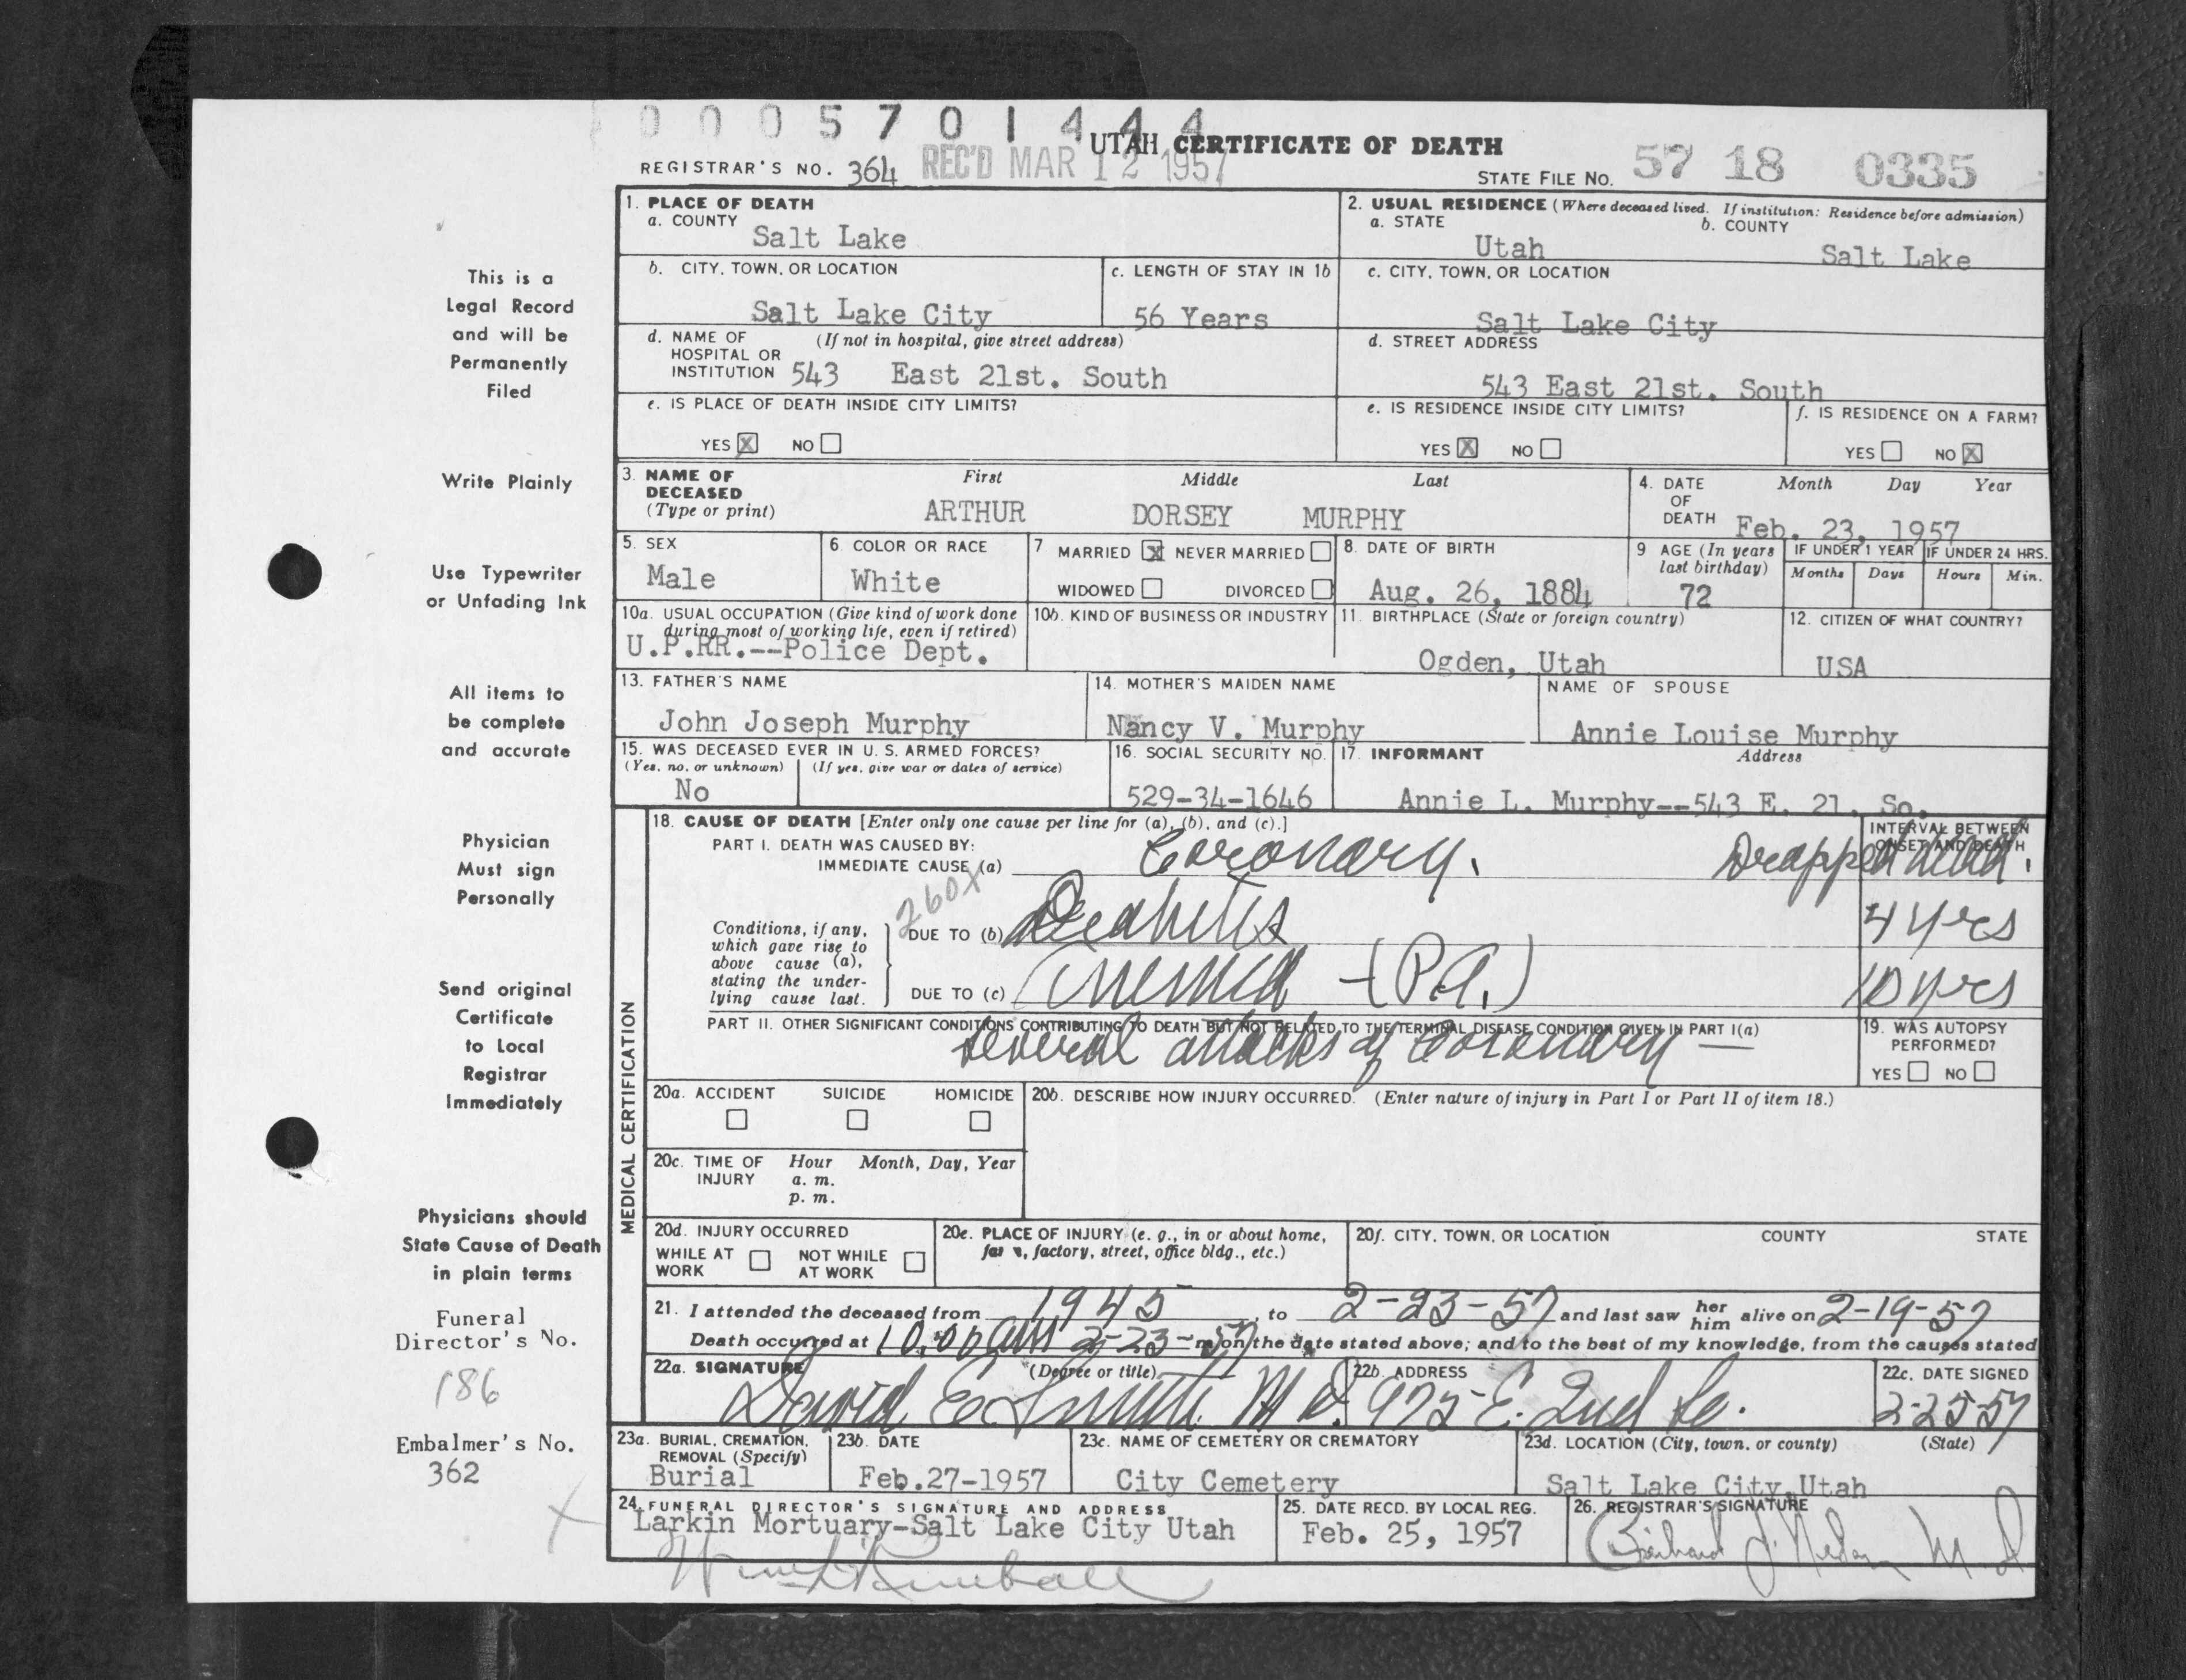 0005701444
UTAH CERTIFICATE OF DEATH
REGISTRAR'S NO. 364 REC'D MAR 12 1957
STATE FILE NO. 57 18 0335
1. PLACE OF DEATH
a. COUNTY
Salt Lake
2. USUAL RESIDENCE (Where deceased lived. If institution: Residence before admission)
a. STATE b. COUNTY
Utah Salt Lake
b. CITY, TOWN, OR LOCATION
Salt Lake City
c. LENGTH OF STAY IN 1b
56 Years
c. CITY, TOWN, OR LOCATION
Salt Lake City
d. NAME OF (If not in hospital, give street address)
HOSPITAL OR
INSTITUTION 543 East 21st. South
d. STREET ADDRESS
543 East 21st. South
e. IS PLACE OF DEATH INSIDE CITY LIMITS?
YES X NO
e. IS RESIDENCE INSIDE CITY LIMITS?
YES X NO
f. IS RESIDENCE ON A FARM?
YES NO X
3. NAME OF First Middle Last
DECEASED
(Type or print) ARTHUR DORSEY MURPHY
4. DATE Month Day Year
OF
DEATH Feb. 23, 1957
5. SEX
Male
6. COLOR OR RACE
White
7 MARRIED X NEVER MARRIED
WIDOWED DIVORCED
8. DATE OF BIRTH
Aug. 26, 1884
9 AGE (In years
last birthday)
72
IF UNDER 1 YEAR IF UNDER 24 HRS.
Months Days Hours Min.
10a. USUAL OCCUPATION (Give kind of work done
during most of working life, even if retired)
U.P.RR.--Police Dept.
10b. KIND OF BUSINESS OR INDUSTRY
11. BIRTHPLACE (State or foreign country)
Ogden, Utah
12. CITIZEN OF WHAT COUNTRY?
USA
13. FATHER'S NAME
John Joseph Murphy
14. MOTHER'S MAIDEN NAME
Nancy V. Murphy
NAME OF SPOUSE
Annie Louise Murphy
15. WAS DECEASED EVER IN U. S. ARMED FORCES?
(Yes, no, or unknown) (If yes, give war or dates of service)
No
16. SOCIAL SECURITY NO.
529-34-1646
17. INFORMANT Address
Annie L. Murphy--543 E. 21. So.
MEDICAL CERTIFICATION
18. CAUSE OF DEATH [Enter only one cause per line for (a), (b), and (c).]
INTERVAL BETWEEN
ONSET AND DEATH
PART I. DEATH WAS CAUSED BY:
IMMEDIATE CAUSE (a) Coronary. Dropped dead.
260X
Conditions, if any,
which gave rise to
above cause (a),
stating the under-
lying cause last.
DUE TO (b) Diabetes 4 yrs
DUE TO (c) Anemia - (P.A.) 10 yrs
PART II. OTHER SIGNIFICANT CONDITIONS CONTRIBUTING TO DEATH BUT NOT RELATED TO THE TERMINAL DISEASE CONDITION GIVEN IN PART I(a)
Several attacks of Coronary —
19. WAS AUTOPSY
PERFORMED?
YES NO
20a. ACCIDENT SUICIDE HOMICIDE
20b. DESCRIBE HOW INJURY OCCURRED. (Enter nature of injury in Part I or Part II of item 18.)
20c. TIME OF Hour Month, Day, Year
INJURY a. m.
p. m.
20d. INJURY OCCURRED
WHILE AT NOT WHILE
WORK AT WORK
20e. PLACE OF INJURY (e. g., in or about home,
farm, factory, street, office bldg., etc.)
20f. CITY, TOWN, OR LOCATION COUNTY STATE
21. I attended the deceased from 1945, to 2-23-57 and last saw her him alive on 2-19-57
Death occurred at 10:00 am 2-23-57 m on the date stated above; and to the best of my knowledge, from the causes stated
22a. SIGNATURE (Degree or title)
David E Smith M D.
22b. ADDRESS
975 E. 2nd So.
22c. DATE SIGNED
2-25-57
23a. BURIAL, CREMATION,
REMOVAL (Specify)
Burial
23b. DATE
Feb.27-1957
23c. NAME OF CEMETERY OR CREMATORY
City Cemetery
23d. LOCATION (City, town, or county) (State)
Salt Lake City, Utah
24. FUNERAL DIRECTOR'S SIGNATURE AND ADDRESS
Larkin Mortuary-Salt Lake City Utah
Kimball
25. DATE RECD. BY LOCAL REG.
Feb. 25, 1957
26. REGISTRAR'S SIGNATURE
M. D
This is a
Legal Record
and will be
Permanently
Filed
Write Plainly
Use Typewriter
or Unfading Ink
All items to
be complete
and accurate
Physician
Must sign
Personally
Send original
Certificate
to Local
Registrar
Immediately
Physicians should
State Cause of Death
in plain terms
Funeral
Director's No.
186
Embalmer's No.
362
X